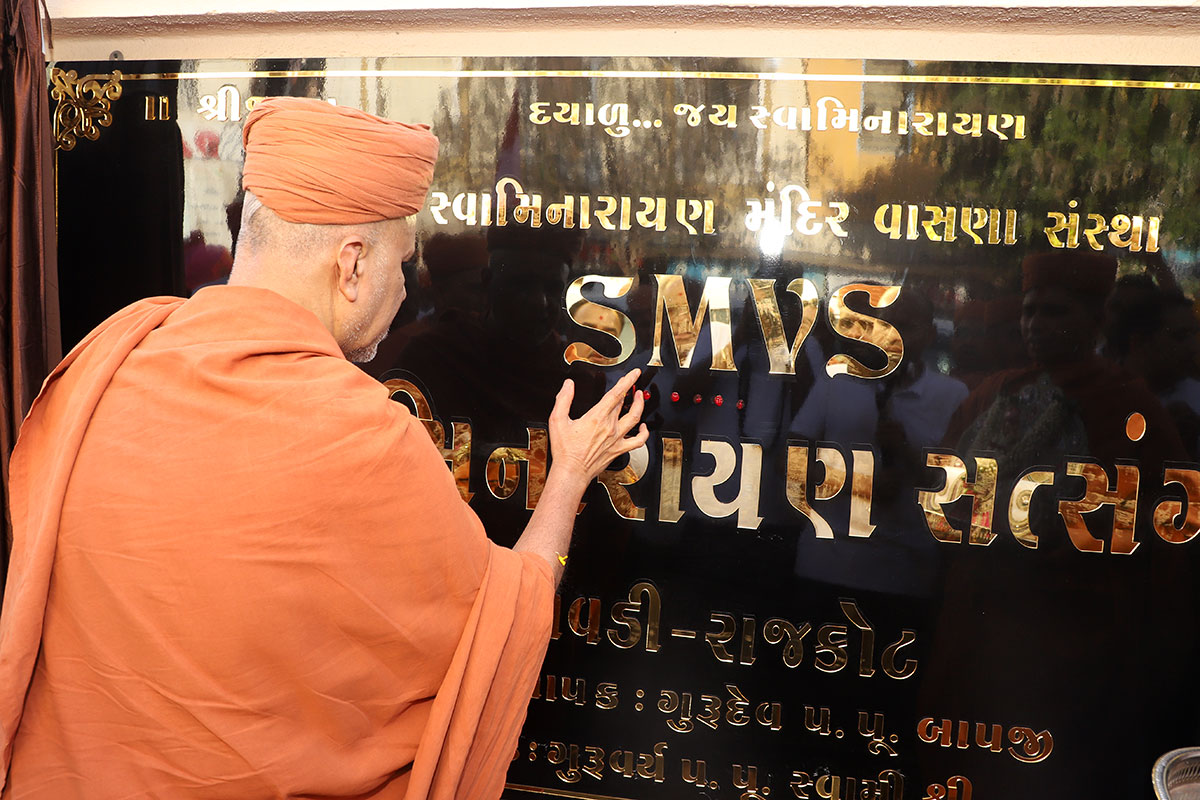 ॥ શ્રી
દયાળુ... જય સ્વામિનારાયણ
સ્વામિનારાયણ મંદિર વાસણા સંસ્થા
SMVS
મિનારાયણ સત્સંગ
વડી-રાજકોટ
પક : ગુરુદેવ પ. પૂ. બાપજી
: ગુરુવર્ય પ. પૂ. સ્વામી શ્રી